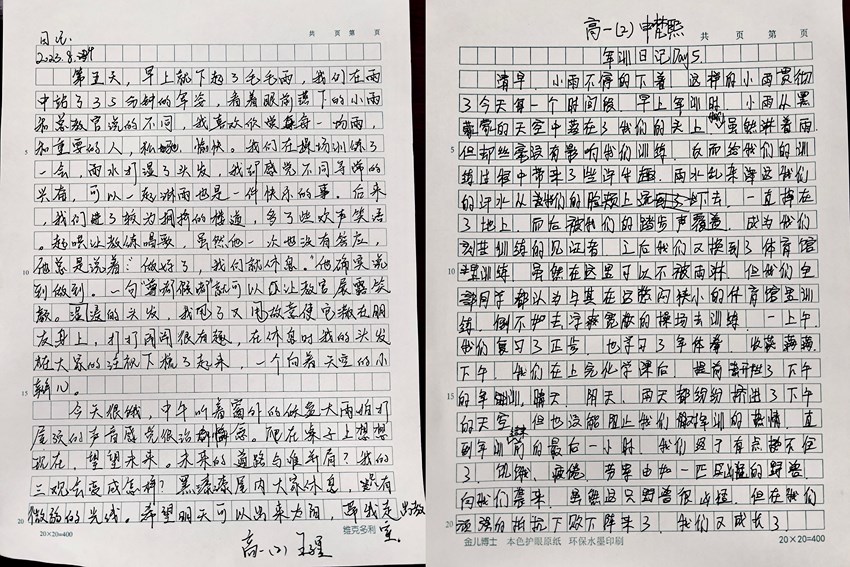 日记.
共 页 第 页
2023.8.
第五天，早上就下起了毛毛雨，我们在雨
中站了35分钟的军姿，看着眼前落下的小雨
和总教官说的不同，我喜欢你
和重要的人，愉快。我们在操场训练了
一会，雨水打湿了头发，我却感觉不同寻常的
兴奋，可以一起淋雨也是一件快乐的事。后来
，我们进了较为拥挤的楼道，多了些欢声笑语
。起哄让教练唱歌，虽然他一次也没有答应，
他总是说着：“做好了，我们就休息。”他确实说
到做到。一句就可以让教官展露笑
颜。湿湿的头发，我甩了又甩故意使它撒在朋
友身上，打打闹闹很有趣，在休息时我的头发
在大家的注视下梳了起来，一个向着天空的小
辫儿。
今天很, 中午听着窗外的倾盆大雨拍打
屋顶的声音感觉很治愈。爬在桌子上想想
现在，望望未来。未来的道路与谁并肩？我的
三观会变成怎样？黑漆漆屋内大家休息，有
微弱的光线。希望明天可以出来太阳，我走出教
室.
5
10
15
20
20×20=400
维克多利
高一(2) 王
高一(2) 申楚熙
共 页 第 页
军训日记Day5.
清早, 小雨不停的下着 这样的小雨贯彻
了今天每一个时间段. 早上军训时, 小雨从黑
的天空中落在了我们的头上 虽然淋着雨.
但却丝毫没有影响我们训练. 反而给我们的训
练过程中带来了些许乐趣. 雨水乱来着我们
的汗水从我们的脸颊上流下去. 一直掉在
了地上. 而后被我们的踏步声覆盖, 成为我们
刻苦训练的见证者 之后我们又换到了体育馆
里训练 虽然在这里可以不被雨淋. 但我们全
部同学都认为与其在这较闷狭小的体育馆里训
练. 倒不如去宽敞的操场去训练. 一上午.
我们复习了正步. 也学习了军体拳. 收获满满.
下午. 我们在上完化学课后. 提前开起了下午
的军训, 晴天. 阴天. 雨天都纷纷挤进了下午
的天空. 但也没能阻止我们军训的热情. 直
到军训的最后一小时. 我们终于有点撑不住
了. 饥饿、疲倦、劳累由如一匹凶猛的野兽.
向我们袭来. 虽然这只野兽很凶猛. 但在我们
顽强的抵抗下败下阵来了. 我们又成长了
5
10
15
20
金儿博士 本色护眼原纸 环保水墨印刷
20×20=400